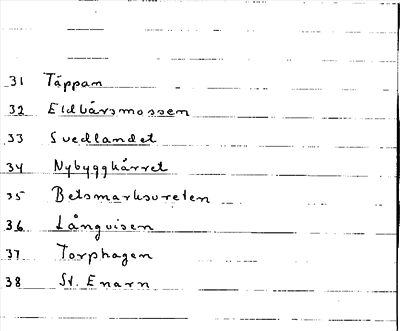 31 Täppan
32 Eldbårsmossen
33 Svedlandet
34 Nybyggkärret
35 Betsmarksvreten
36 Långvisen
37 Torphagen
38 St. Enarn